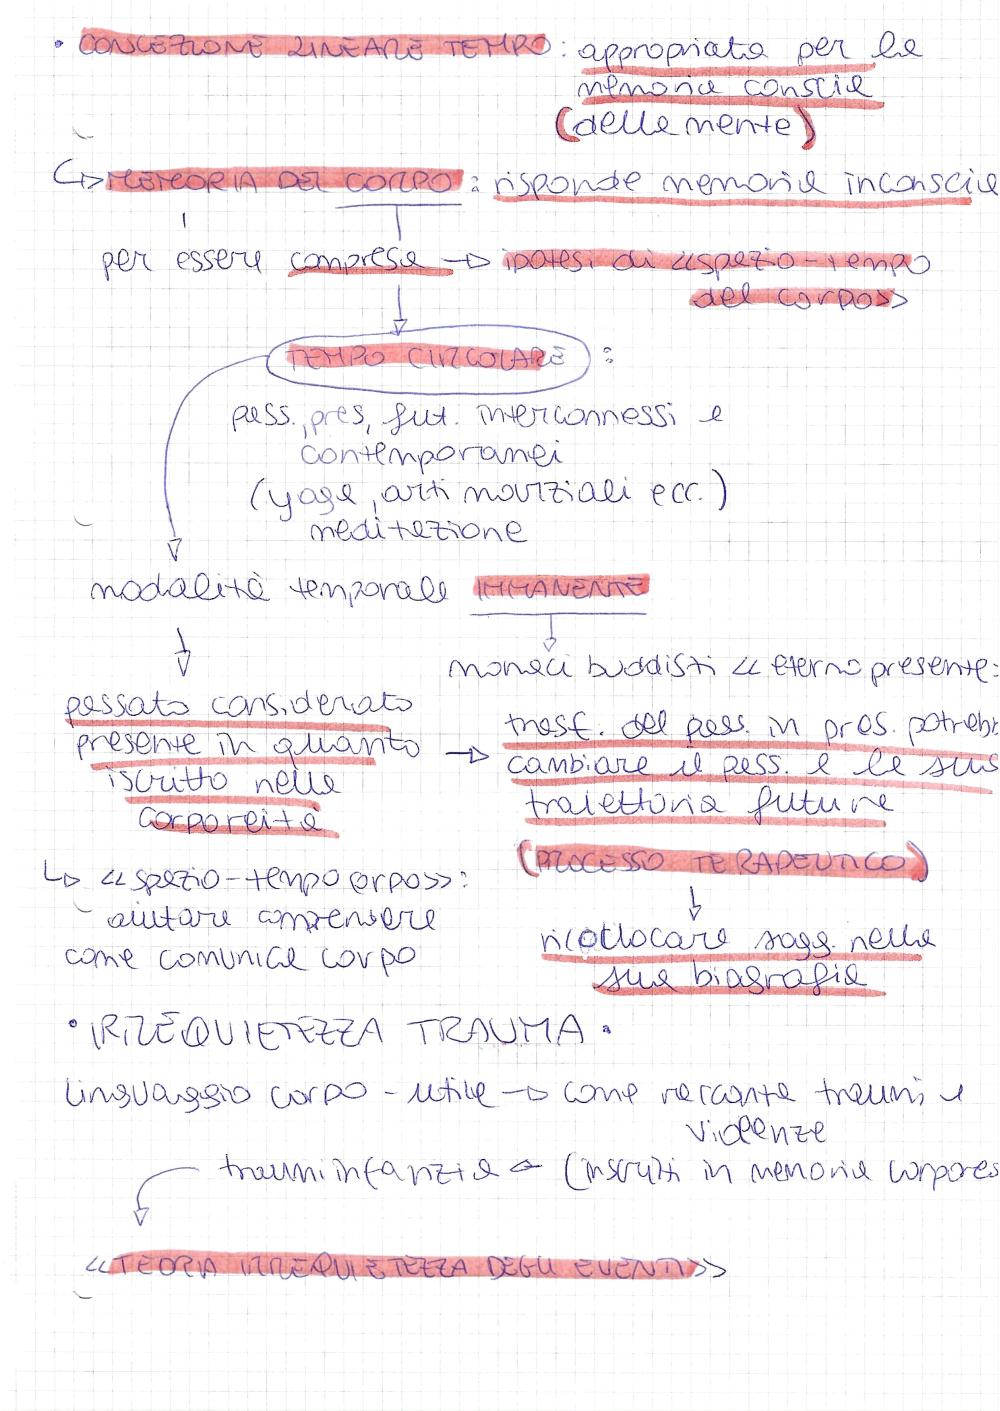 • CONCEZIONE LINEARE TEMPO: appropriata per la
memoria conscia
(della mente)
↳ MEMORIA DEL CORPO: risponde memoria inconscia
per essere compresa → ipotesi di «spazio-tempo
del corpo»
TEMPO CIRCOLARE:
pass., pres, fut. interconnessi e
contemporanei
(yoga, arti marziali ecc.)
meditazione
modalità temporale IMMANENTE
monaci buddisti « eterno presente:
passato considerato
presente in quanto
iscritto nella
corporeità
→ trasf. del pass. in pres. potrebb
cambiare il pass. e la sua
traiettoria futura
(PROCESSO TERAPEUTICO)
ricollocare sogg. nella
sua biografia
↳ «spazio-tempo corpo»:
aiutare comprendere
come comunica corpo
• IRREQUIETEZZA TRAUMA •
linguaggio corpo - utile → come racconta traumi e
violenze
traumi infanzia ← (inscritti in memoria corporea
«TEORIA IRREQUIETEZZA DEGLI EVENTI»